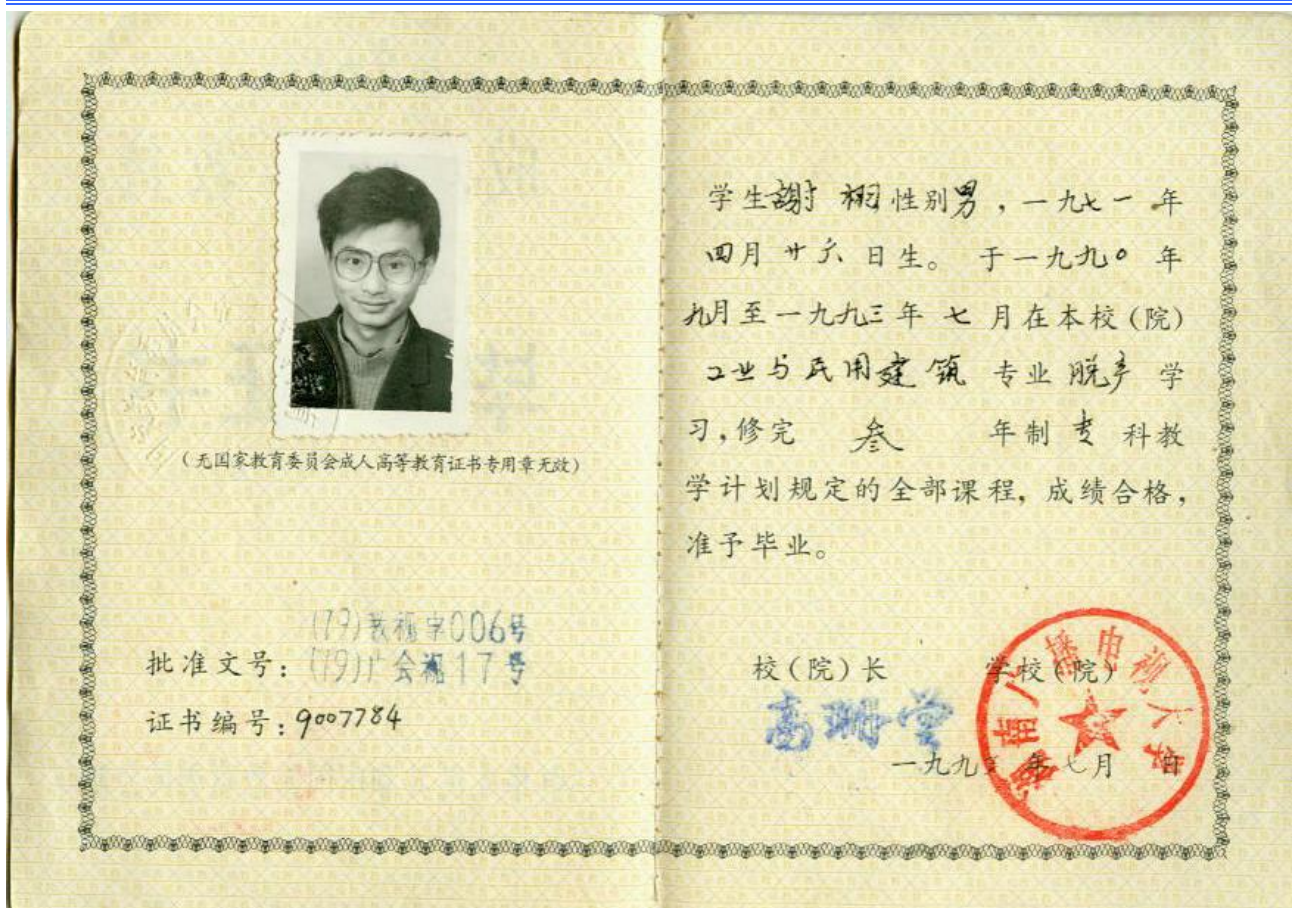 (无国家教育委员会成人高等教育证书专用章无效)
(79)教视字006号
批准文号：(79)广会湘17号
证书编号：9007784
学生謝栩性别男，一九七一年
四月廿六日生。于一九九〇年
九月至一九九三年七月在本校(院)
工业与民用建筑专业脱产学
习，修完叁年制专科教
学计划规定的全部课程，成绩合格，
准予毕业。
校(院)长 学校(院)
高珊
湖南广播电视大学
一九九三年七月 日